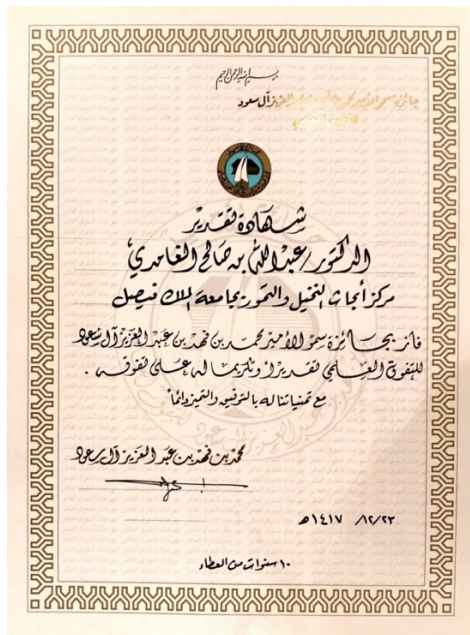 بسم الله الرحمن الرحيم
جائزة سمو الأمير محمد بن فهد بن عبد العزيز آل سعود
شهادة تقدير
الدكتور/عبد الله بن صالح الغامدي
مركز أبحاث النخيل والتمور بجامعة الملك فيصل
فاز بجائزة سمو الأمير محمد بن فهد بن عبد العزيز آل سعود
للتفوق العلمي تقديراً وتكريماً له على تفوقه .
مع تمنياتنا له بالتوفيق والتميز دائماً
محمد بن فهد بن عبد العزيز آل سعود
١٤١٧/١٢/٢٣هـ
١٠ سنوات من العطاء